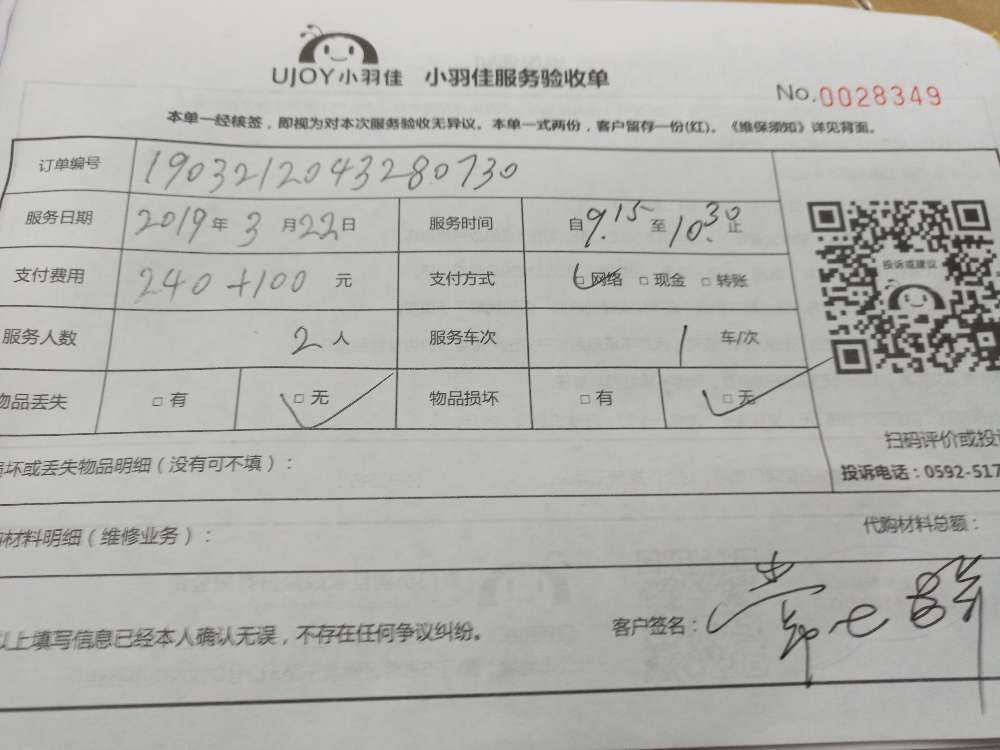 UJOY小羽佳 小羽佳服务验收单
No.0028349
本单一经核签，即视为对本次服务验收无异议。本单一式两份，客户留存一份(红)。《维保须知》详见背面。
订单编号 1903212043280730
服务日期 2019年3月22日 服务时间 自9.15至10.30止
支付费用 240+100元 支付方式 □网络 □现金 □转账
投诉或建议
服务人数 2人 服务车次 1车/次
物品丢失 □有 □无 物品损坏 □有 □无
扫码评价或投
坏或丢失物品明细（没有可不填）：
投诉电话：0592-517
材料明细（维修业务）： 代购材料总额：
以上填写信息已经本人确认无误，不存在任何争议纠纷。 客户签名：